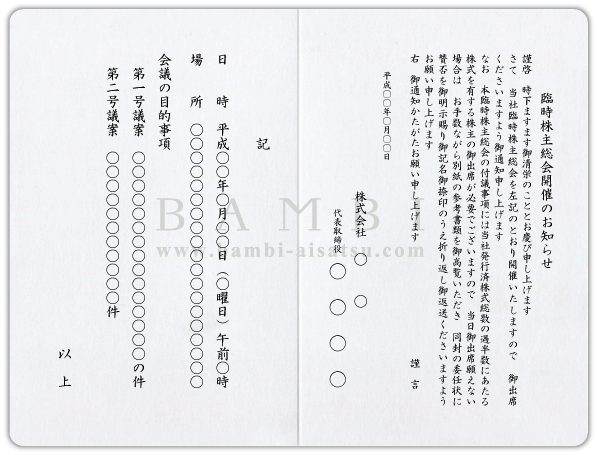 臨時株主総会開催のお知らせ
謹啓 時下ますます御清栄のこととお慶び申し上げます
さて 当社臨時株主総会を左記のとおり開催いたしますので 御出席
くださいますよう御通知申し上げます
なお 本臨時株主総会の付議事項には当社発行済株式総数の過半数にあたる
株式を有する株主の御出席が必要でございますので 当日御出席願えない
場合は お手数ながら別紙の参考書類を御高覧いただき 同封の委任状に
賛否を御明示賜り御記名御捺印のうえ折り返し御返送くださいますよう
お願い申し上げます
右 御通知かたがたお願い申し上げます
謹言
平成〇〇年〇月〇〇日
株式会社 〇〇
代表取締役 〇〇〇〇
記
日 時 平成〇〇年〇月〇〇日(〇曜日)午前〇時
場 所 〇〇〇〇〇〇〇〇〇〇〇〇〇〇〇〇〇
会議の目的事項
第一号議案 〇〇〇〇〇〇〇〇〇〇〇〇〇の件
第二号議案 〇〇〇〇〇〇〇〇〇〇〇件
以上
BAMBI
www.bambi-aisatsu.com